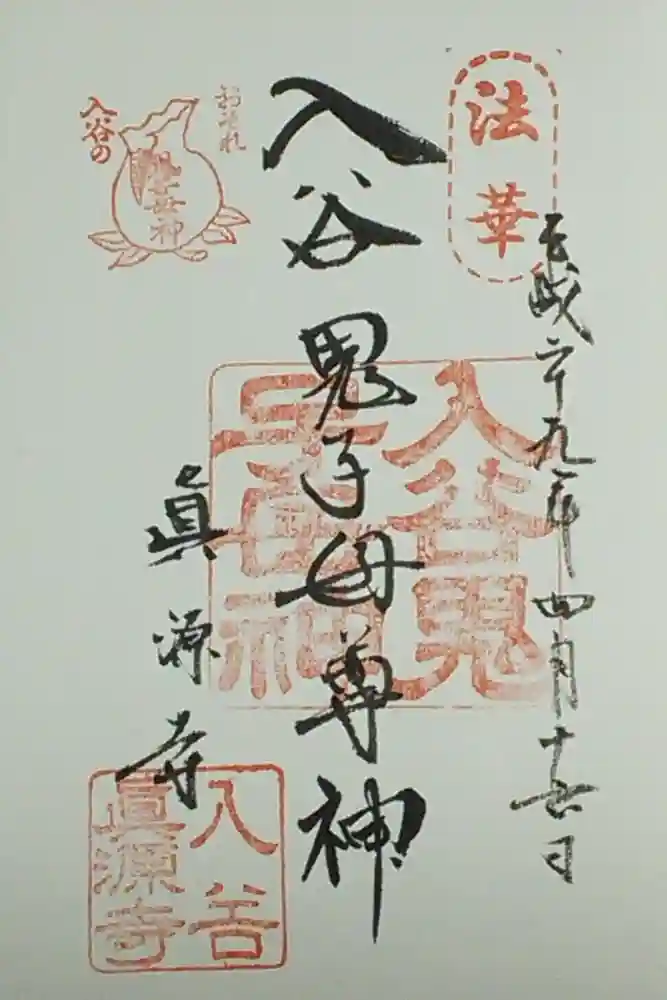 法華
平成二十九年四月十六日
入谷鬼子母尊神
おそれ
入谷の
鬼子母神
入谷鬼
子母神
眞源寺
入谷
眞源寺